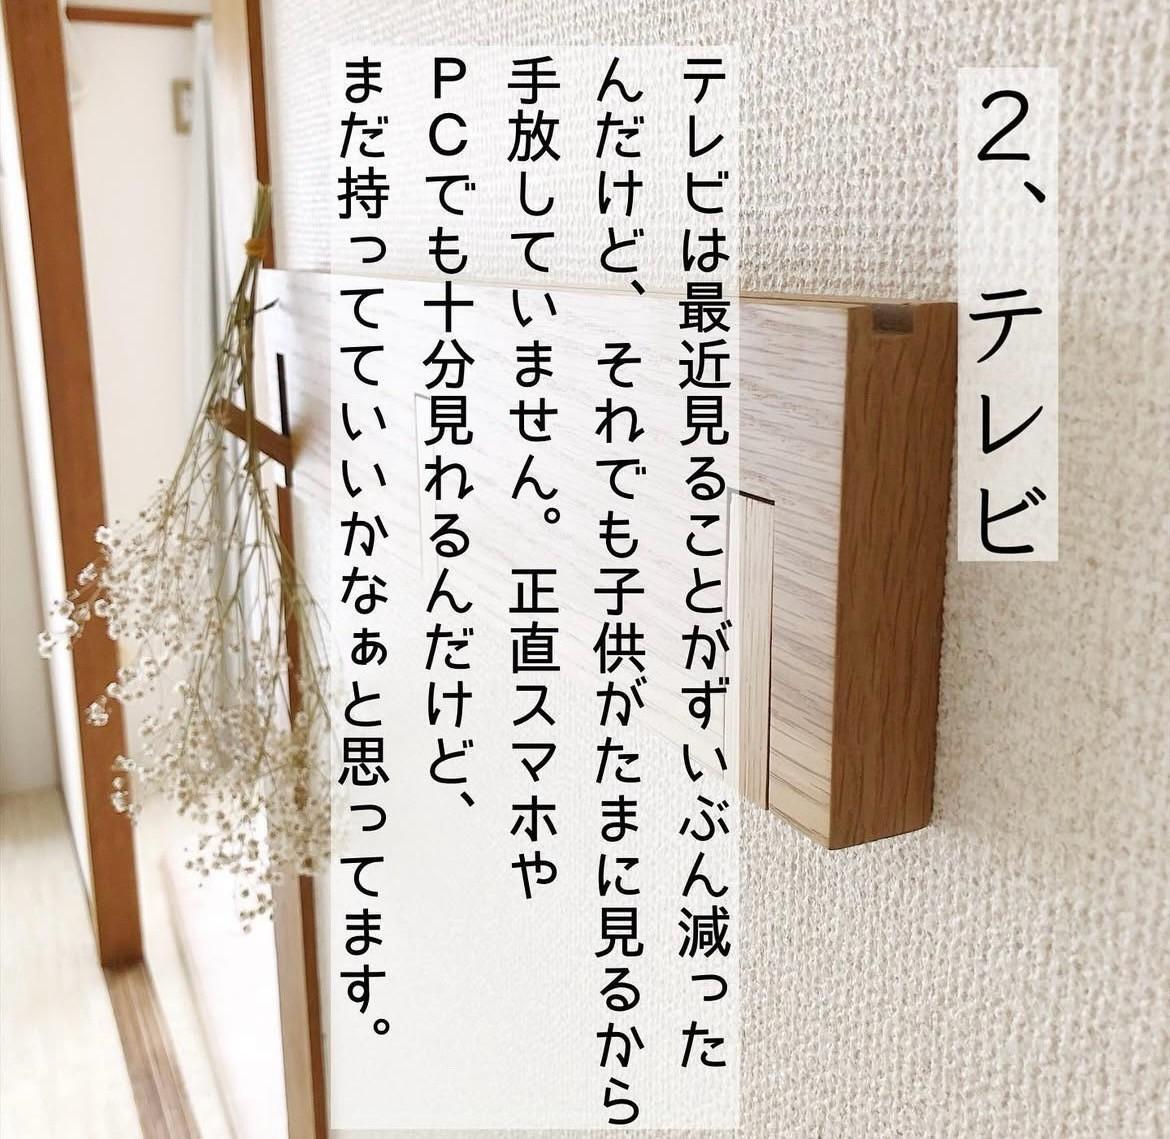 2、テレビ
テレビは最近見ることがずいぶん減った
んだけど、それでも子供がたまに見るから
手放していません。正直スマホや
PCでも十分見れるんだけど、
まだ持ってていいかなぁと思ってます。